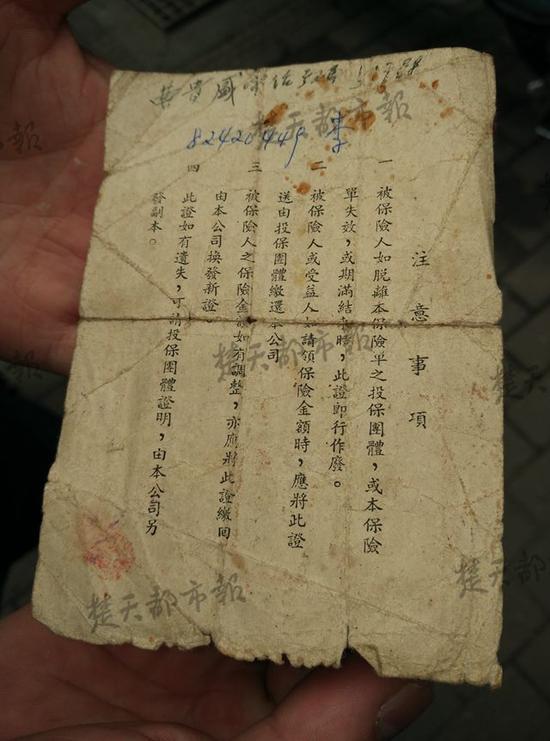 82420449 李
注意事項
一 被保險人如脫離本保險單之投保團體，或本保險
單失效，或期滿結束時，此證即行作廢。
二 被保險人或受益人如請領保險金額時，應將此證
送由投保團體繳還本公司
三 被保險人之保險金額如有調整，亦應將此證繳回
由本公司換發新證
四 此證如有遺失，可請投保團體證明，由本公司另
發副本。
楚天都市報
楚天都市報
楚天都市報
楚天都市報